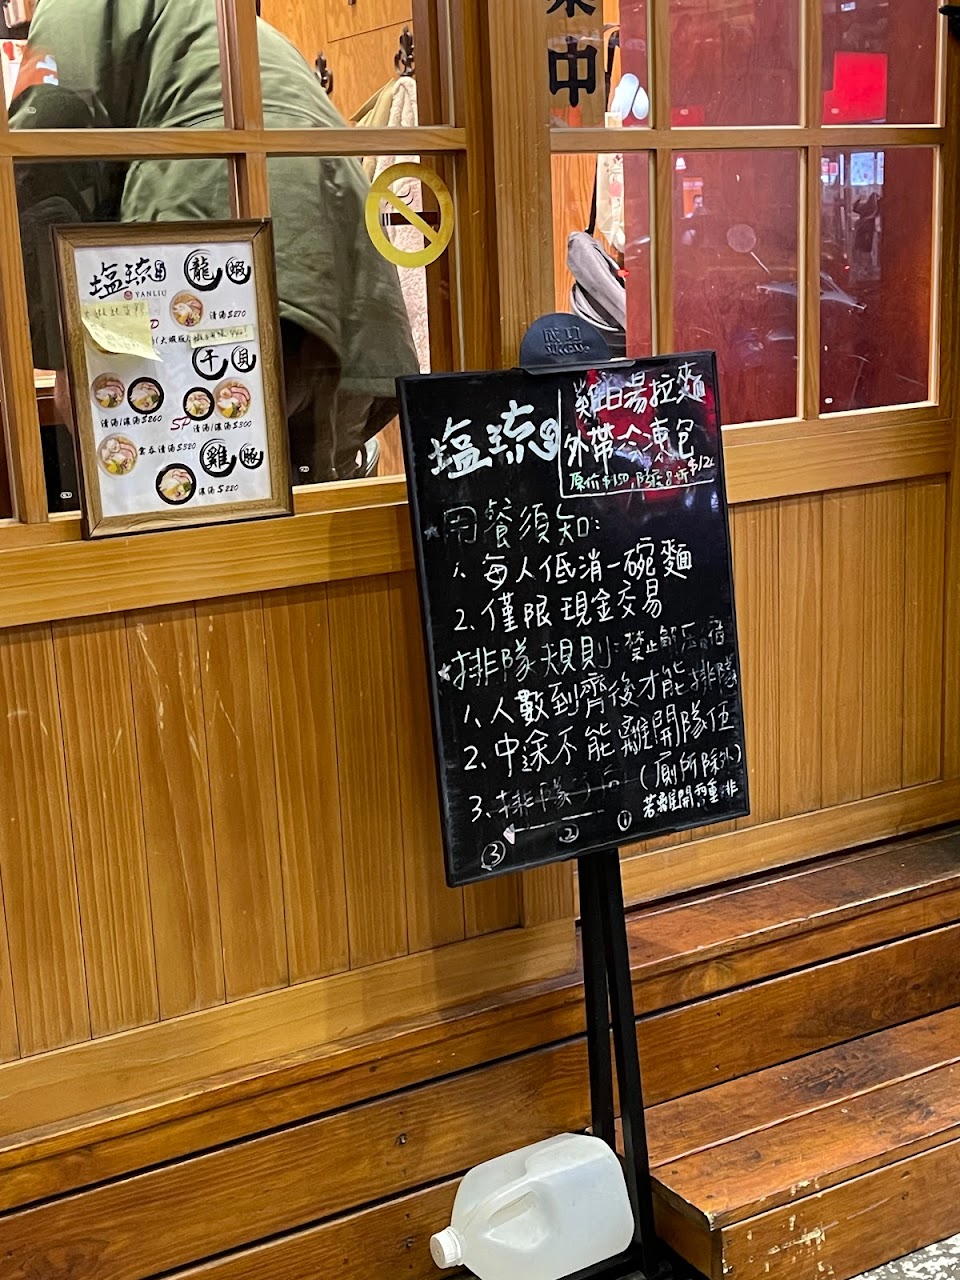 業中
塩琉
YANLIU
龍蝦
清湯$270
干貝
清湯/濃湯$260
SP 清湯/濃湯$300
雲吞清湯$320
雞豚
濃湯$220
塩琉
雞白湯拉麵
外帶冷凍包
原價$150
用餐須知:
1. 每人低消一碗麵
2. 僅限現金交易
排隊規則:禁止
1. 人數到齊後才能排隊
2. 中途不能離開隊伍
(廁所除外)
若離開需重排
3. 排隊方向
③ ② ①